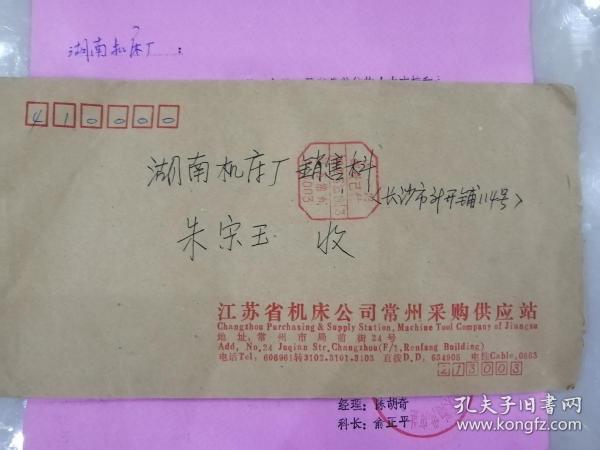 湖南机床厂：
410000
湖南机床厂销售科
〈长沙市开铺114号〉
朱宗玉 收
江苏省机床公司常州采购供应站
Changzhou Purchasing & Supply Station, Machine Tool Company of Jiangsu
地址：常州市局前街24号
Add, No.24 Juqian Str, Changzhou(F/1, Renfang Building)
电话Tel：606961转3102.3101.3103 直拨D.D. 634905 电挂Cable.0863
213003
经理：陈胡奇
科长：俞正平
孔夫子旧书网
www.kongfz.com